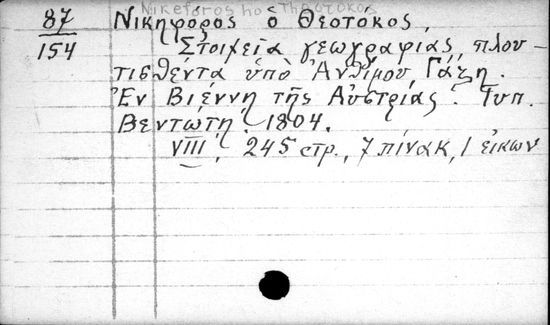 Nikeforos ho Theotokos
87 Νικηφόρος ὁ Θεοτόκος,
154 Στοιχεῖα γεωγραφίας, πλου-
τισθέντα ὑπὸ Ἀνθίμου Γάζη. -
Ἐν Βιέννῃ τῆς Αὐστρίας. Τυπ.
Βεντώτη. 1804.
VIII, 245 стр., 7 πίνακ, 1 εἰκων